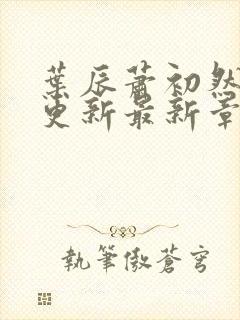 葉辰蕭初然
更新最新章
執筆傲蒼穹